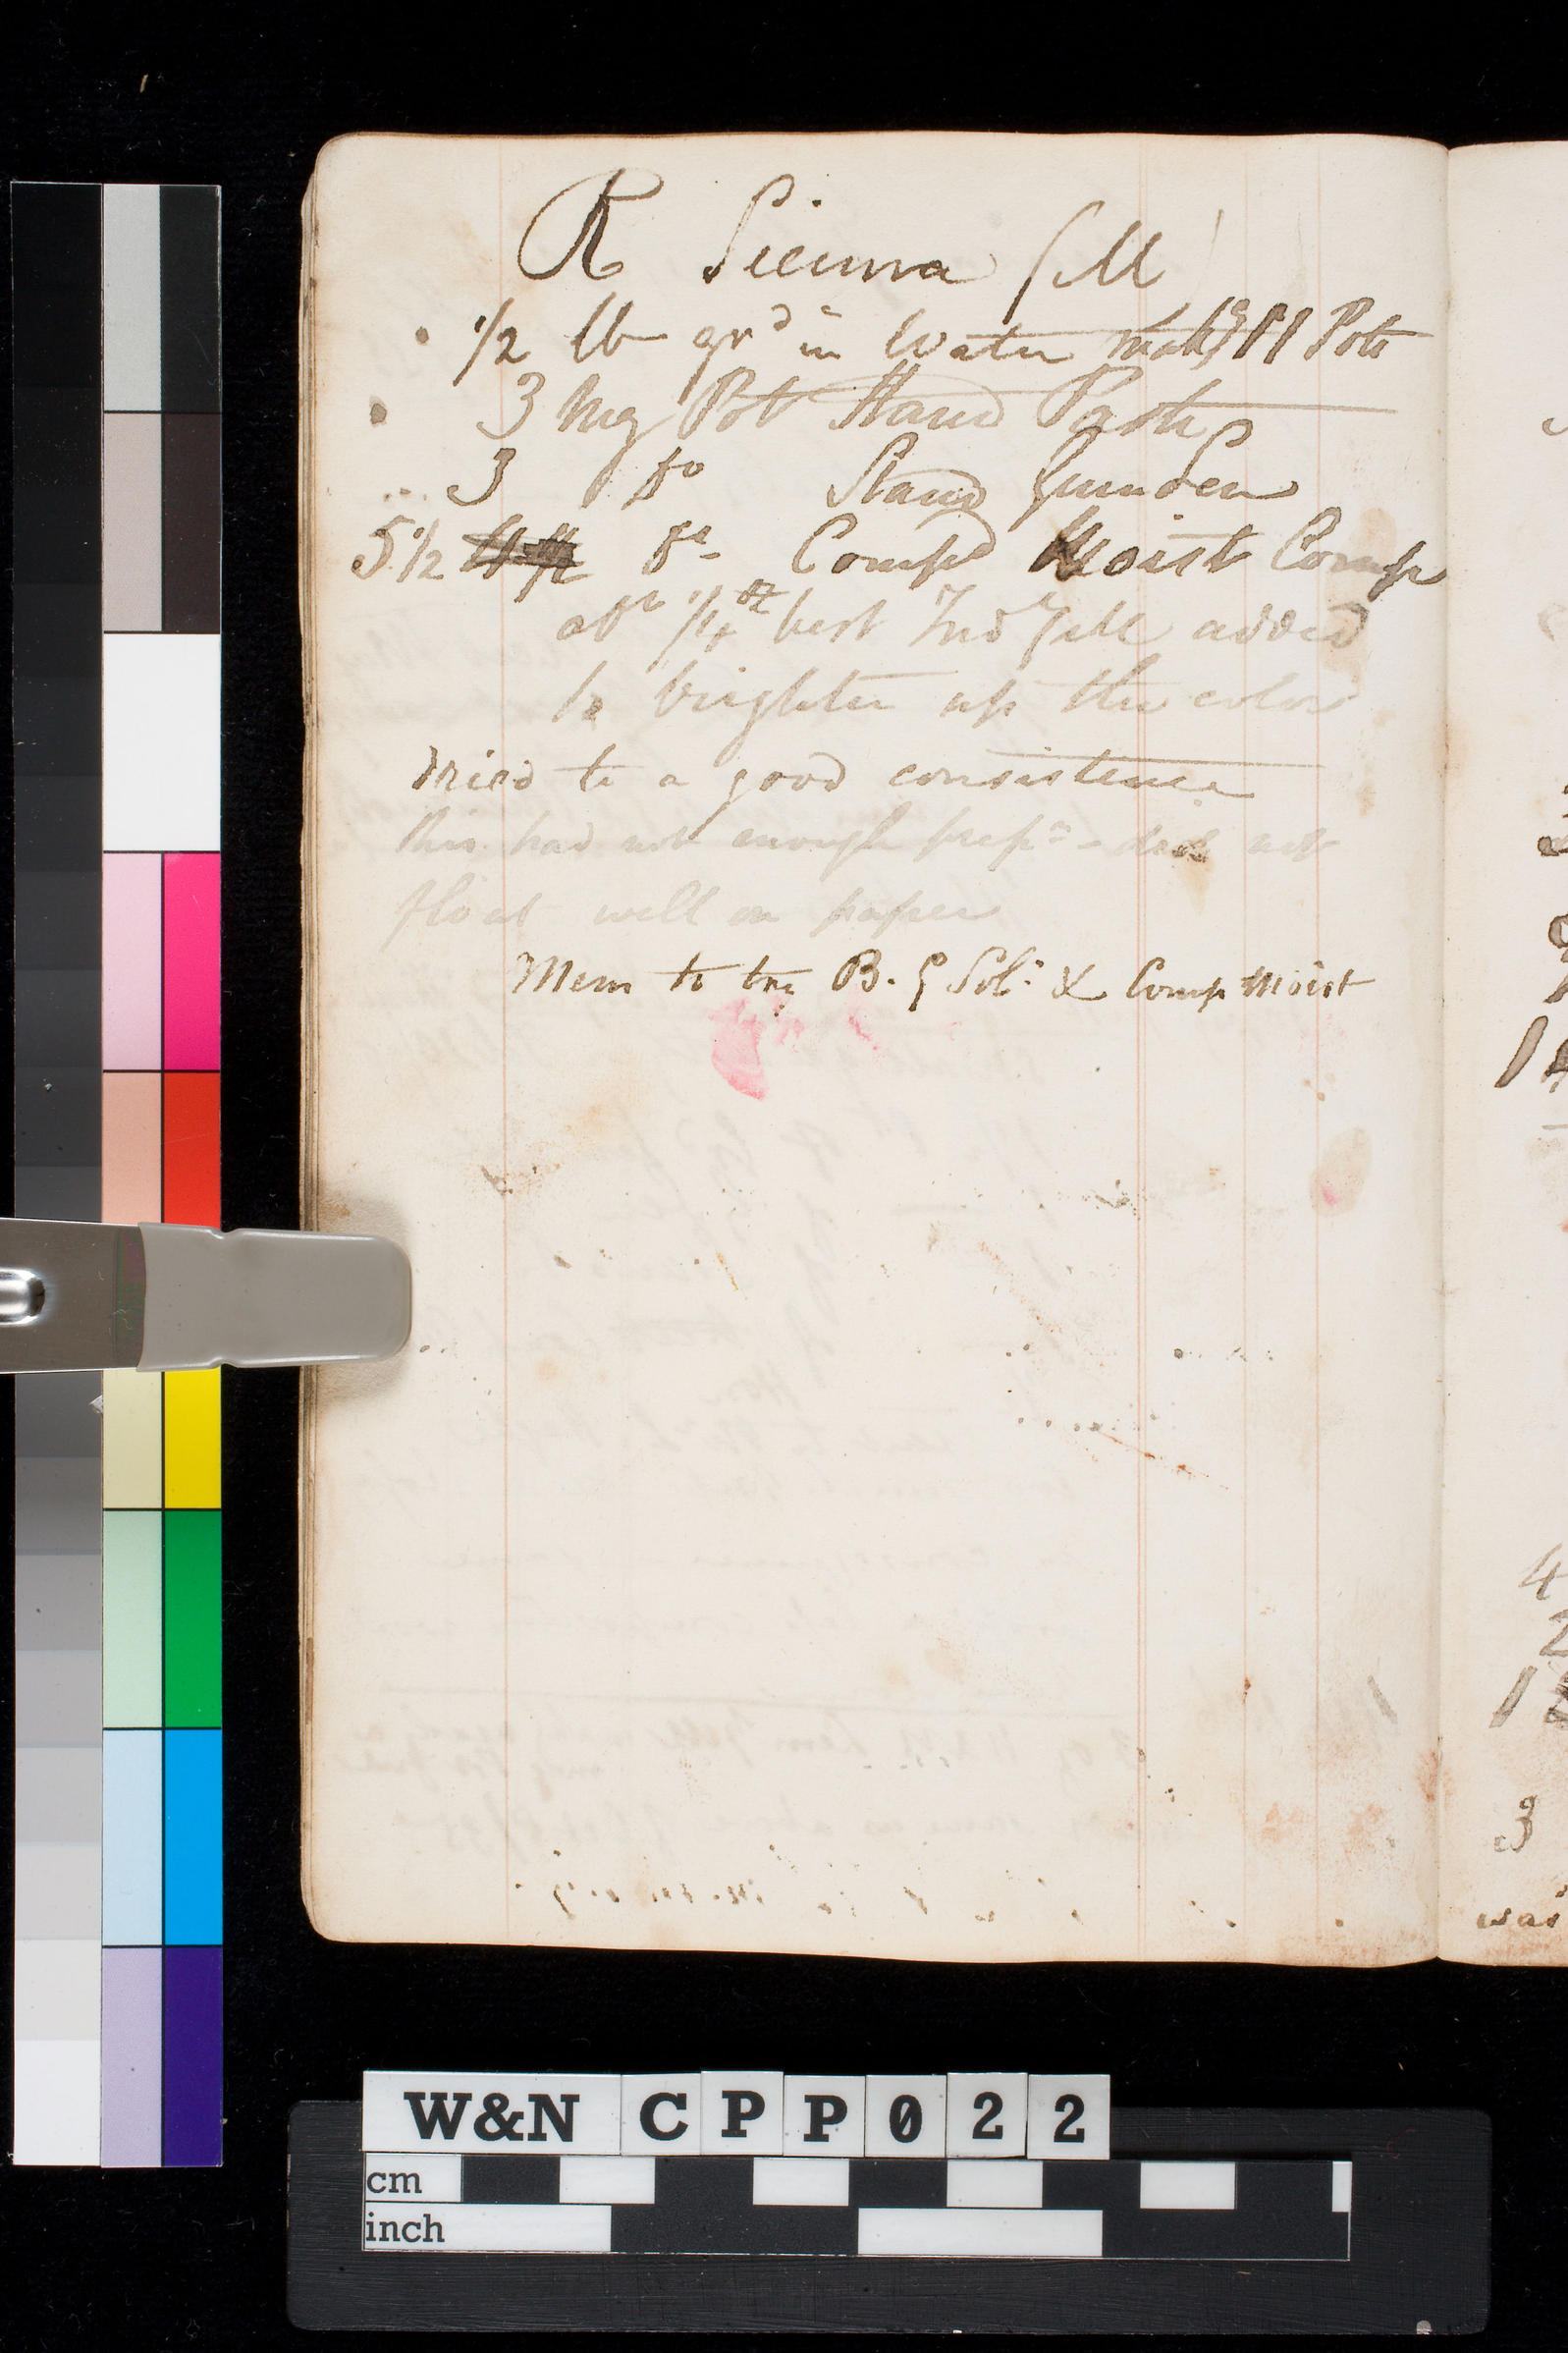 R Sienna
1/2 lb grd in Water Pots
3 Mg Pot Stand Paste
3 do Stand
5 1/2 do Compd Moist Comp
abt 1/4 oz best Ind Yell added
to brighten up the color
dried to a good consistence
this had not enough prepn - does not
float well on paper
Mem to try B. G Sol: & Comp Moist
4
2
3
was
W&N CPP022
cm
inch